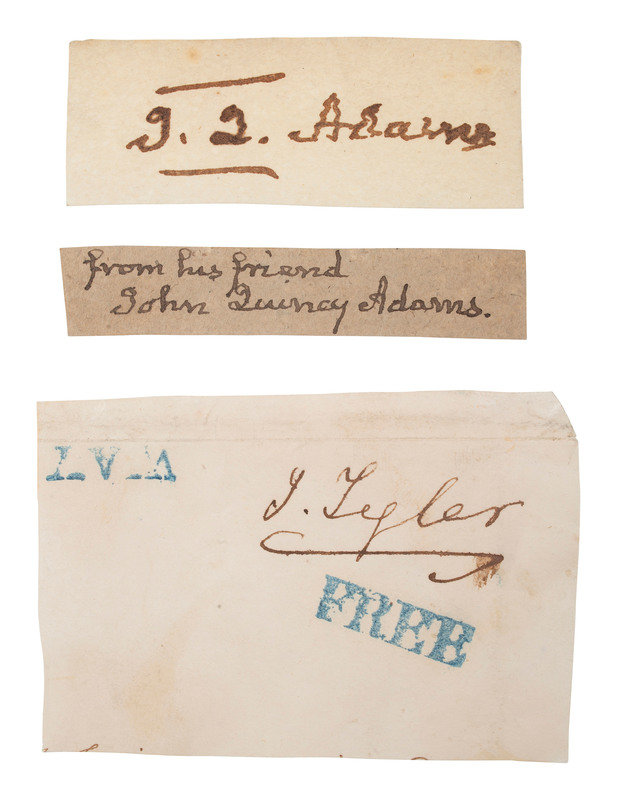 J. Q. Adams
from his friend
John Quincy Adams.
J. Tyler
FREE